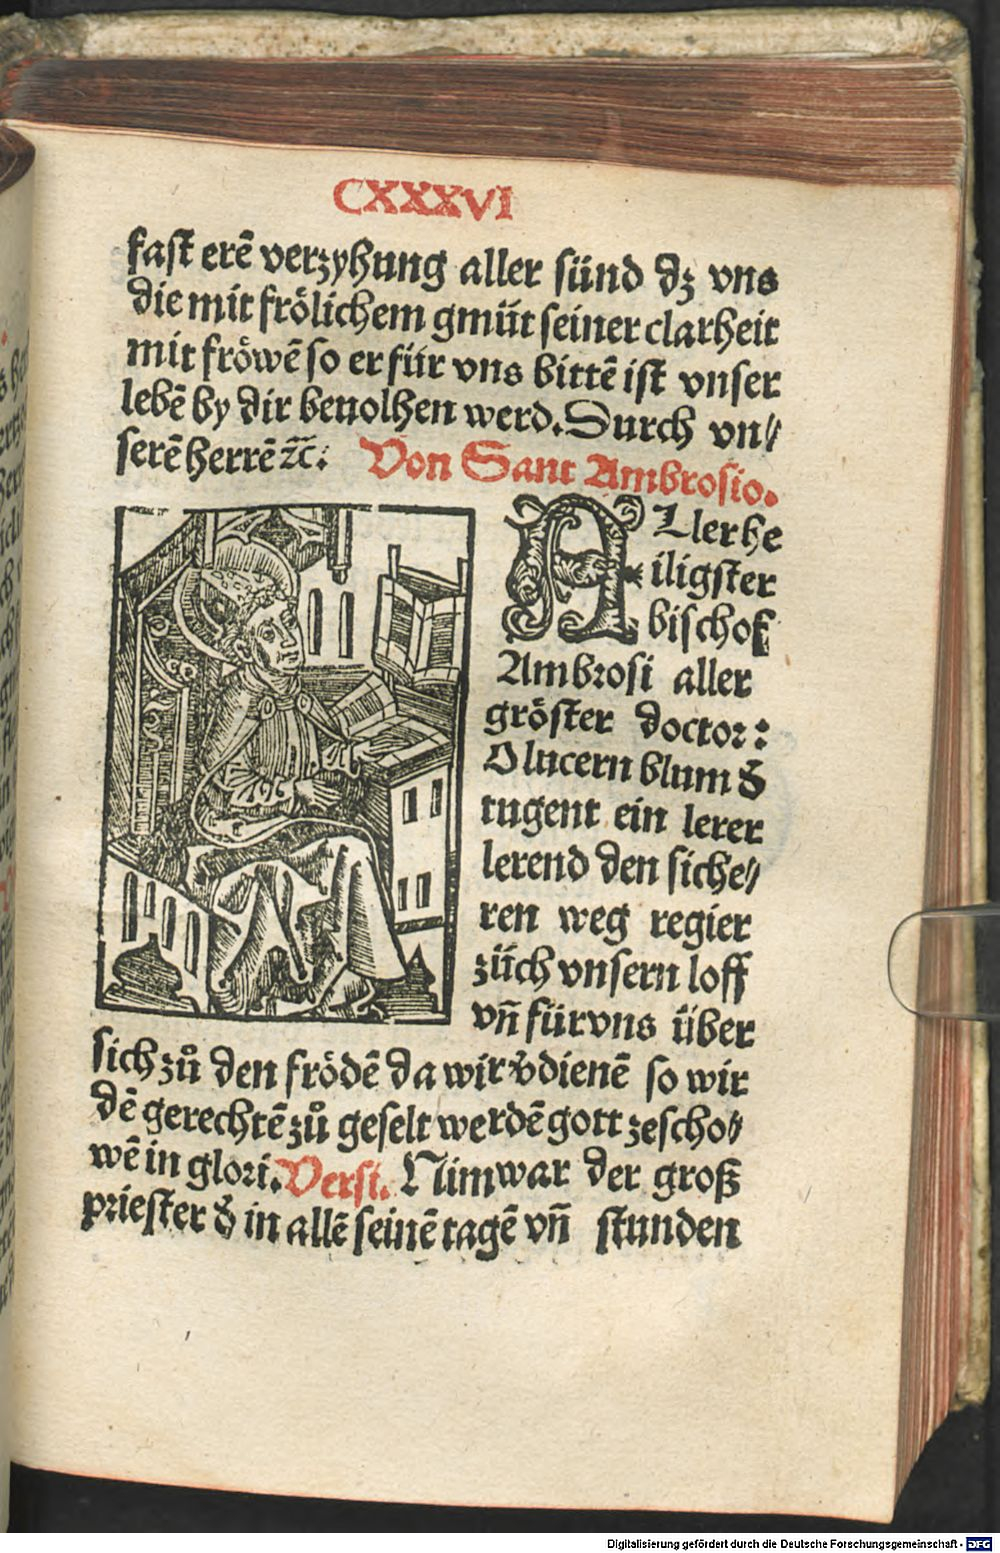 CXXXVI
fast erē verzyhung aller sünd dz vns
die mit frölichem gmüt seiner clarheit
mit fröwē so er für vns bittē ist vnser
lebē by dir beuolhen werd. Durch vn⸗
serē herrē ⁊c̃. Von Sant Ambrosio.
ALlerhe
iligster
bischof
Ambrosi aller
gröster doctor:
O lucern blum đ
tugent ein lerer
lerend den siche⸗
ren weg regier
züch vnsern loff
vñ für vns über
sich zů den frödē da wir v̄dienē so wir
dē gerechtē zů geselt werdē gott zescho⸗
wē in glori. Versi. Nim war der groß
priester đ in allē seinē tagē vñ stunden
Digitalisierung gefördert durch die Deutsche Forschungsgemeinschaft - DFG